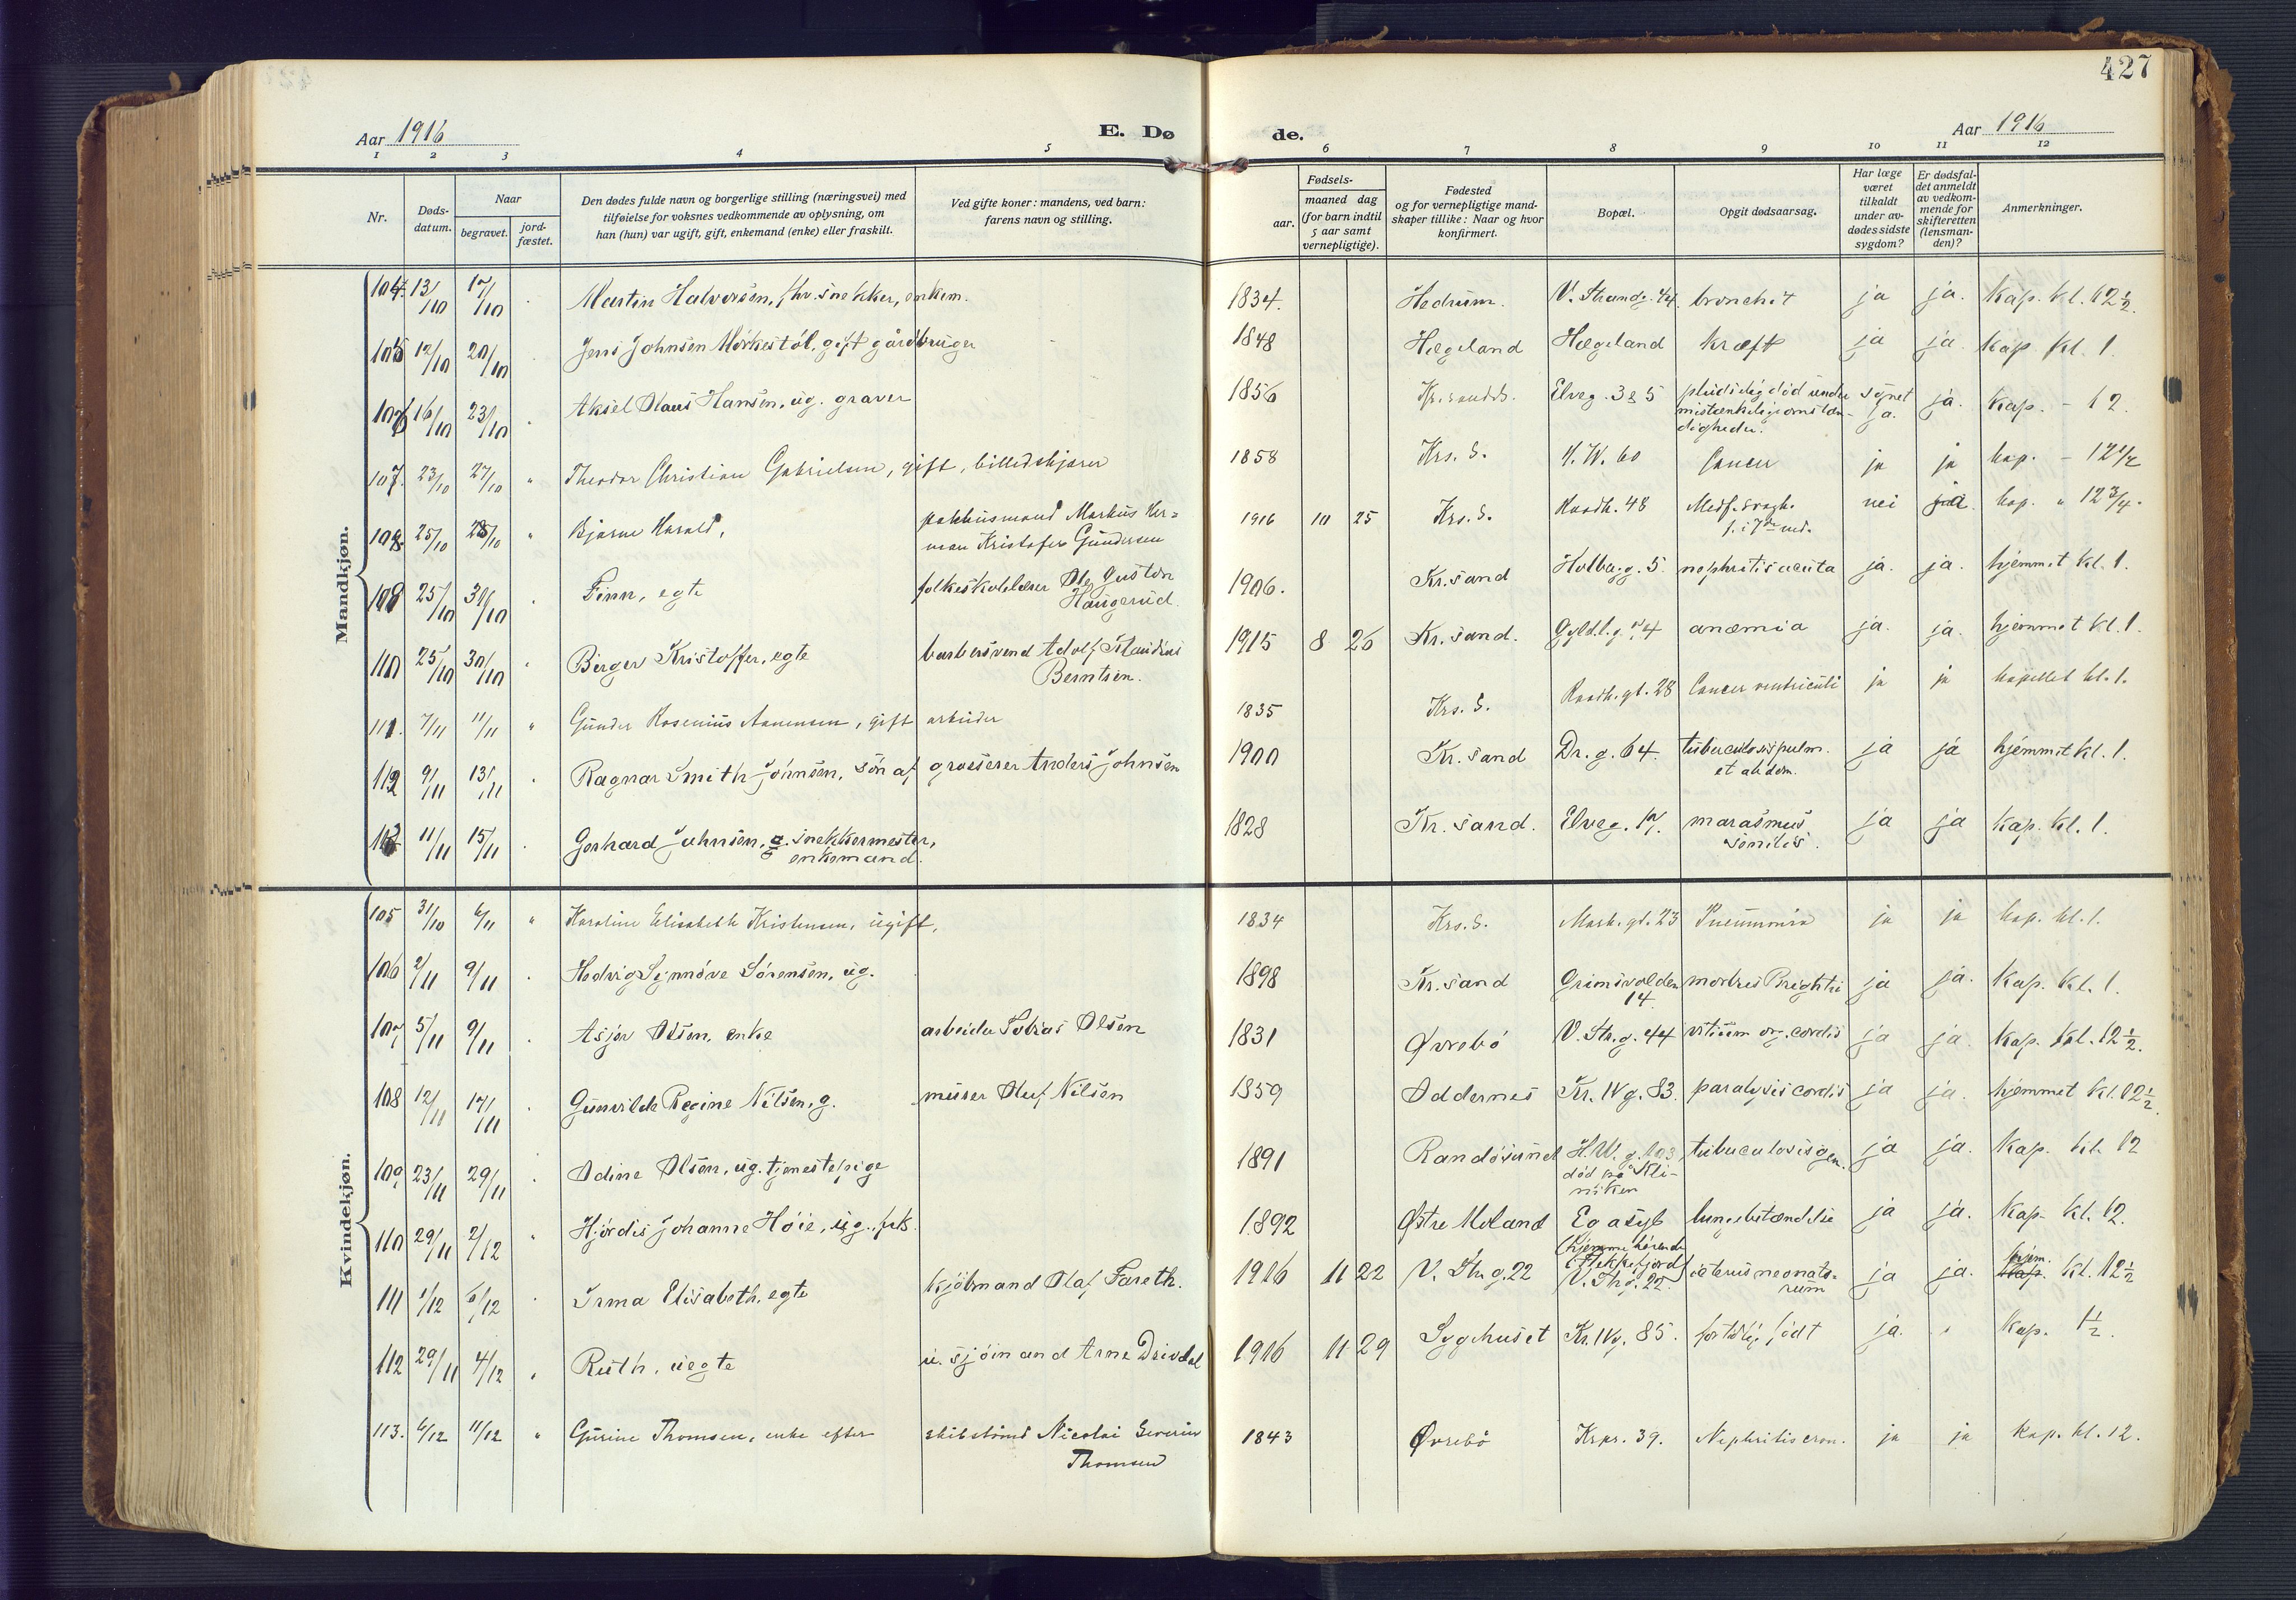 427
Aar 1916 E. Dø de. Aar 1916
1 2 3 4 5 6 7 8 9 10 11 12
Nr.
Døds-
datum.
Naar
begravet.
jord-
fæstet.
Den dødes fulde navn og borgerlige stilling (næringsvei) med
tilføielse for voksnes vedkommende av oplysning, om
han (hun) var ugift, gift, enkemand (enke) eller fraskilt.
Ved gifte koner: mandens, ved barn:
farens navn og stilling.
Fødsels-
aar.
maaned dag
(for barn indtil
5 aar samt
vernepligtige).
Fødested
og for vernepligtige mand-
skaper tillike: Naar og hvor
konfirmert.
Bopæl.
Opgit dødsaarsag.
Har læge
været
tilkaldt
under av-
dødes sidste
sygdom?
Er dødsfal-
det anmeldt
av vedkom-
mende for
skifteretten
(lensman-
den)?
Anmerkninger.
Mandkjøn.
104. 13/10 17/10 Martin Halvorsen, fhv. snekker, enkem. 1834. Hedrum. V. Strandg. 44. bronchit ja ja. Kap. kl. 12 1/2.
105 12/10 20/10 Jens Johnsen Mørkestøl, gift gårdbruger 1848 Hægeland Hægeland kræft ja ja. Kap. kl. 1.
106 16/10 23/10 Aksel Olaus Hansen, ug. graver 1856 Kr.sands. Elveg. 38 5 pludselig død under synet ja. Kap. - 12.
mistænkelige omstæn- ja.
digheder.
107. 23/10 27/10 " Theodor Christian Gabrielsen, gift, billedskjærer 1858 Krs. S. K. W. 60 Cancer ja ja kap. - 12 1/2
108. 25/10 28/10 " Bjarne Harald, pakhusmand Markus Her= 1916 10 25 Krs. S. Raadh. 48 Medf. svagh. nei ja. kap. " 12 3/4.
man Kristofer Gundersen f. i 7de md.
109 25/10 31/10 Finn, egte folkeskolelærer Ole Gustav 1906. Kr.sand Holbg.g. 5. nephritis acuta ja. ja. hjemmet kl. 1.
Haugerud.
110 25/10 30/10 Birger Kristoffer, egte barbersvend Adolf Klaudius 1915 8 26 Kr.sand. Gyld.l.g. 74 anæmia ja. ja. hjemmet kl. 1.
Berntsen.
111. 7/11 11/11 " Gunder Rosenius Aanensen, gift arbeider 1835 Krs. S. Raadh. gt. 28 Cancer ventriculi ja ja kapellet kl. 1.
112 9/11 13/11 Ragnar Smith Johnsen, søn af grosserer Anders Johnsen 1900 Kr. sand Dr. g. 64. tuberculosis pulm. ja ja hjemmet kl. 1.
et abdom.
113 11/11 15/11 Gerhard Johnsen, snekkermester, 1828 Kr. sand. Elveg. 17. marasmus ja ja Kap. kl. 1.
enkemand. senilis.
Kvindekjøn.
105 31/10 6/11 " Karoline Elisabeth Kristensen, ugift, 1834 Krs. S. Mark. gt. 23 Pneumonia ja ja kap. kl. 1.
106 2/11 9/11 Hedvig Synnøve Sørensen, ug. 1898 Kr. sand Grimsvolden morbus Brightii ja ja. Kap. kl. 1.
14.
107 5/11 9/11 Asjer Olsen, enke arbeider Tobias Olsen 1831 Øvrebø V. Str. g. 44 vitium org. cordis ja ja. Kap. kl. 12 1/2.
108 12/11 17/11 Gunvilde Regine Nilsen, g. murer Oluf Nilsen 1859 Oddernes Kr. IV g. 83. paralysis cordis ja ja. hjemmet kl. 12 1/2.
109 23/11 29/11 Odine Olsen, ug. tjenestepige 1891 Randøsund H.W. g. 103 tuberculosis gen. ja ja. Kap. kl. 12
død på Kli-
niken
110 29/11 2/12 " Hjørdis Johanne Høie, ug. frk. 1892 Østre Moland Eg asyl lungebetændelse ja ja. Kap. kl. 12.
(hjemmehørende
i Flekkefjord)
111 1/12 6/12 Irma Elisabeth, egte kjøbmand Olaf Fareth. 1916 11 22 V. Str g. 22 V. Str g. 22. icterus neonato- ja ja. hjem. kl. 12 1/2
rum
112 29/11 4/12 Ruth, uegte u. sjømand Arne Drivdal 1916 11 29 Sygehuset Kr. IV g. 85. fortidlig født ja. " Kap. 1 1/2.
113. 6/12 11/12 " Gurine Thomsen, enke efter skibstømd Nicolai Severin 1843 Øvrebø Krpr. 39. Nephritis cron. ja ja kap. kl. 12.
Thomsen